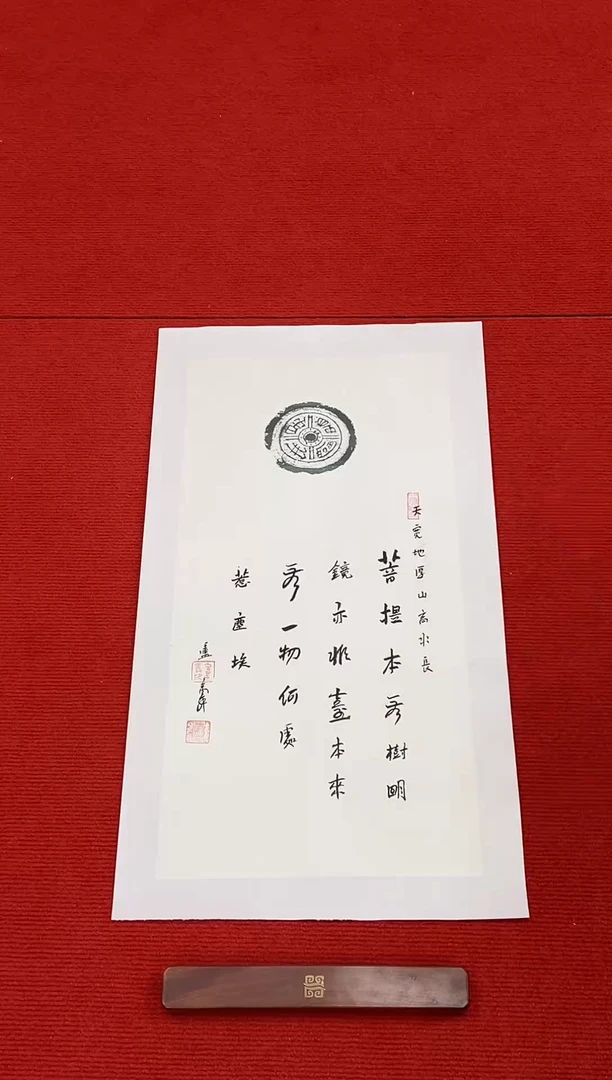 天寬地厚山高水長
菩提本无樹明
鏡亦非臺本來
无一物何處
惹塵埃